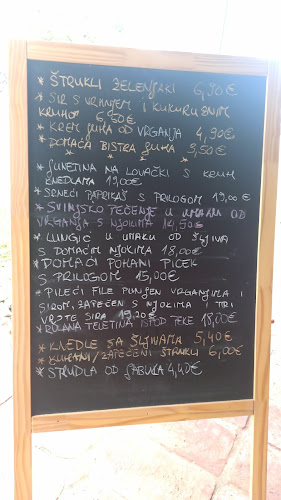 * ŠTRUKLI ZELENJAKI 6,90€
* SIR S VRHNJEM I KUKURUZNIM
KRUHOM 6,50€
* KREM JUHA OD VRGANJA 4,90€
* DOMAĆA BISTRA JUHA 3,50€
* * * * *
* JUNETINA NA LOVAČKI S KRUH
KNEDLAMA 19,00€
* SRNEĆI PAPRIKAŠ S PRILOGOM 19,00€
* SVINJSKO PEČENJE U UMAKU OD
VRGANJA S NJOKIMA 14,50€
* LUNGIĆ U UMAKU OD ŠLJIVA
S DOMAĆIM NJOKIMA 18,00€
* DOMAĆI POHANI PICEK
S PRILOGOM 15,00€
* PILEĆI FILE PUNJEN VRGANJIMA I
SIROM, ZAPEČEN S NJOKIMA TRI
VRSTE SIRA 19,20€
* ROLANA TELETINA ISPOD PEKE 18,00€
* KNEDLE SA ŠLJIVAMA 5,40€
* KUHANI/ZAPEČENI ŠTRUKLI 6,00€
* ŠTRUDLA OD JABUKA 4,40€